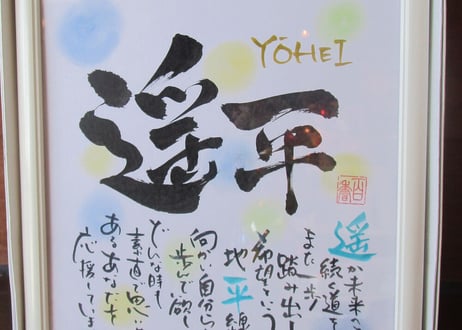 YŌHEI
遥平
遥か未来へ
続く道を
また一歩
踏み出し
希望という
地平線
向かい自分ら
歩んで欲し
どんな時も
素直で思い
あるあなたを
応援していま